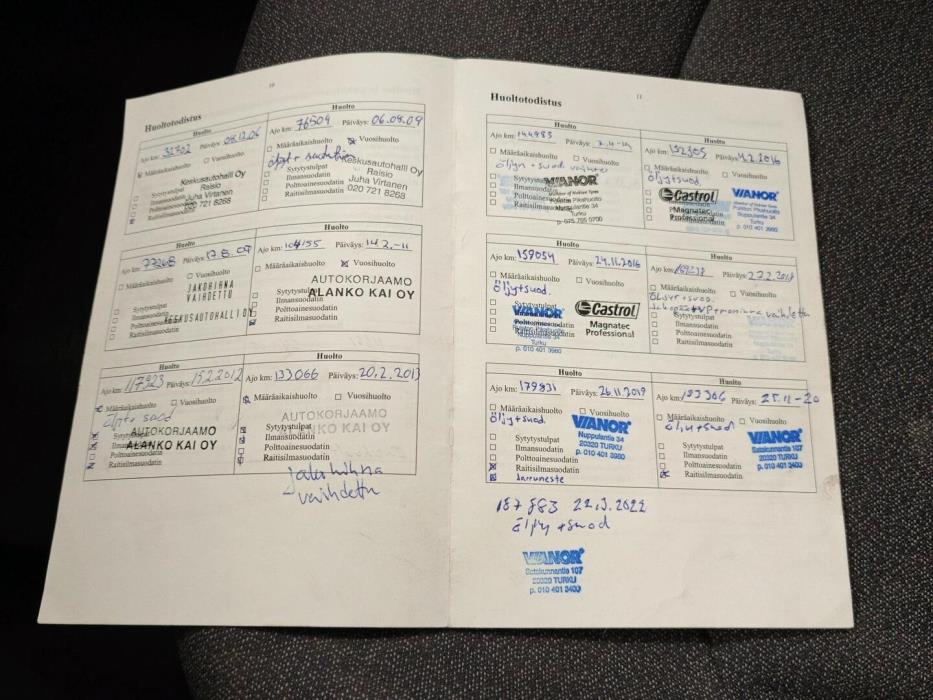 10
Huoltotodistus
Huolto
Ajo km: 32702 Päiväys: 08.12.06
Määräaikaishuolto Vuosihuolto
Sytytystulpat
Ilmansuodatin
Polttoainesuodatin
Raitisilmasuodatin
Keskusautohalli Oy
Raisio
Juha Virtanen
020 721 8268
Huolto
Ajo km: 76509 Päiväys: 06.08.09
Määräaikaishuolto Vuosihuolto
Sytytystulpat
Ilmansuodatin
Polttoainesuodatin
Raitisilmasuodatin
Keskusautohalli Oy
Raisio
Juha Virtanen
020 721 8268
Huolto
Ajo km: 77268 Päiväys: 17.8.09
Määräaikaishuolto Vuosihuolto
JAKOHIHNA
VAIHDETTU
KESKUSAUTOHALLI OY
Huolto
Ajo km: 104155 Päiväys: 14.2.-11
Määräaikaishuolto Vuosihuolto
AUTOKORJAAMO
ALANKO KAI OY
Sytytystulpat
Ilmansuodatin
Polttoainesuodatin
Raitisilmasuodatin
Huolto
Ajo km: 117323 Päiväys: 15.2.2012
Määräaikaishuolto Vuosihuolto
öljyt + suod
AUTOKORJAAMO
ALANKO KAI OY
Polttoainesuodatin
Raitisilmasuodatin
Huolto
Ajo km: 133066 Päiväys: 20.2.2013
Määräaikaishuolto Vuosihuolto
AUTOKORJAAMO
ALANKO KAI OY
Sytytystulpat
Ilmansuodatin
Polttoainesuodatin
Raitisilmasuodatin
Jakohihna
vaihdettu
11
Huoltotodistus
Huolto
Ajo km: 144983 Päiväys:
Määräaikaishuolto Vuosihuolto
öljyn + suod vaihto
VIANOR
Nuppulantie 34
Turku
Huolto
Ajo km: 152305 Päiväys: 4.2.2016
Määräaikaishuolto Vuosihuolto
öljytsuod.
Castrol
Magnatec
Professional
VIANOR
Puiston Pikahuolto
Nuppulantie 34
Turku
p. 010 401 3980
Huolto
Ajo km: 159054 Päiväys: 24.11.2016
Määräaikaishuolto Vuosihuolto
öljy+suod.
Sytytystulpat
VIANOR
Turku
p. 010 401 3980
Castrol
Magnatec
Professional
Huolto
Ajo km: Päiväys:
Määräaikaishuolto Vuosihuolto
Sytytystulpat
Ilmansuodatin
Polttoainesuodatin
Raitisilmasuodatin
Huolto
Ajo km: 179831 Päiväys: 26.11.2019
Määräaikaishuolto Vuosihuolto
öljy+suod.
Sytytystulpat
Ilmansuodatin
Polttoainesuodatin
Raitisilmasuodatin
Jarruneste
VIANOR
Nuppulantie 34
20320 TURKU
p. 010 401 3980
Huolto
Ajo km: 183306 Päiväys: 25.11-20
Määräaikaishuolto Vuosihuolto
öljy+suod
Sytytystulpat
Ilmansuodatin
Polttoainesuodatin
Raitisilmasuodatin
VIANOR
Satakunnantie 107
20320 TURKU
p. 010 401 3400
187 883 22.3.2022
öljy + suod
VIANOR
Satakunnantie 107
20320 TURKU
p. 010 401 3400